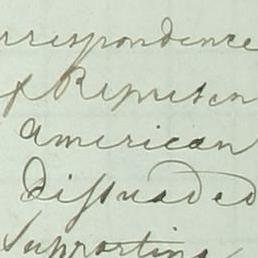 rrespondence
f Represen
American
Dissuaded
Supporting